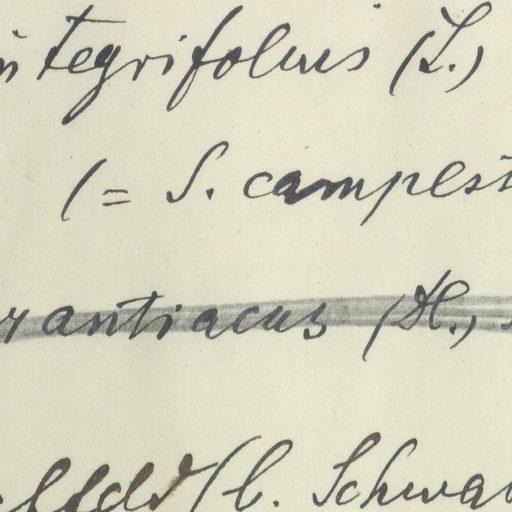 integrifolius (L.)
(= S. campest
rantiacus (H.,
(b. Schwar